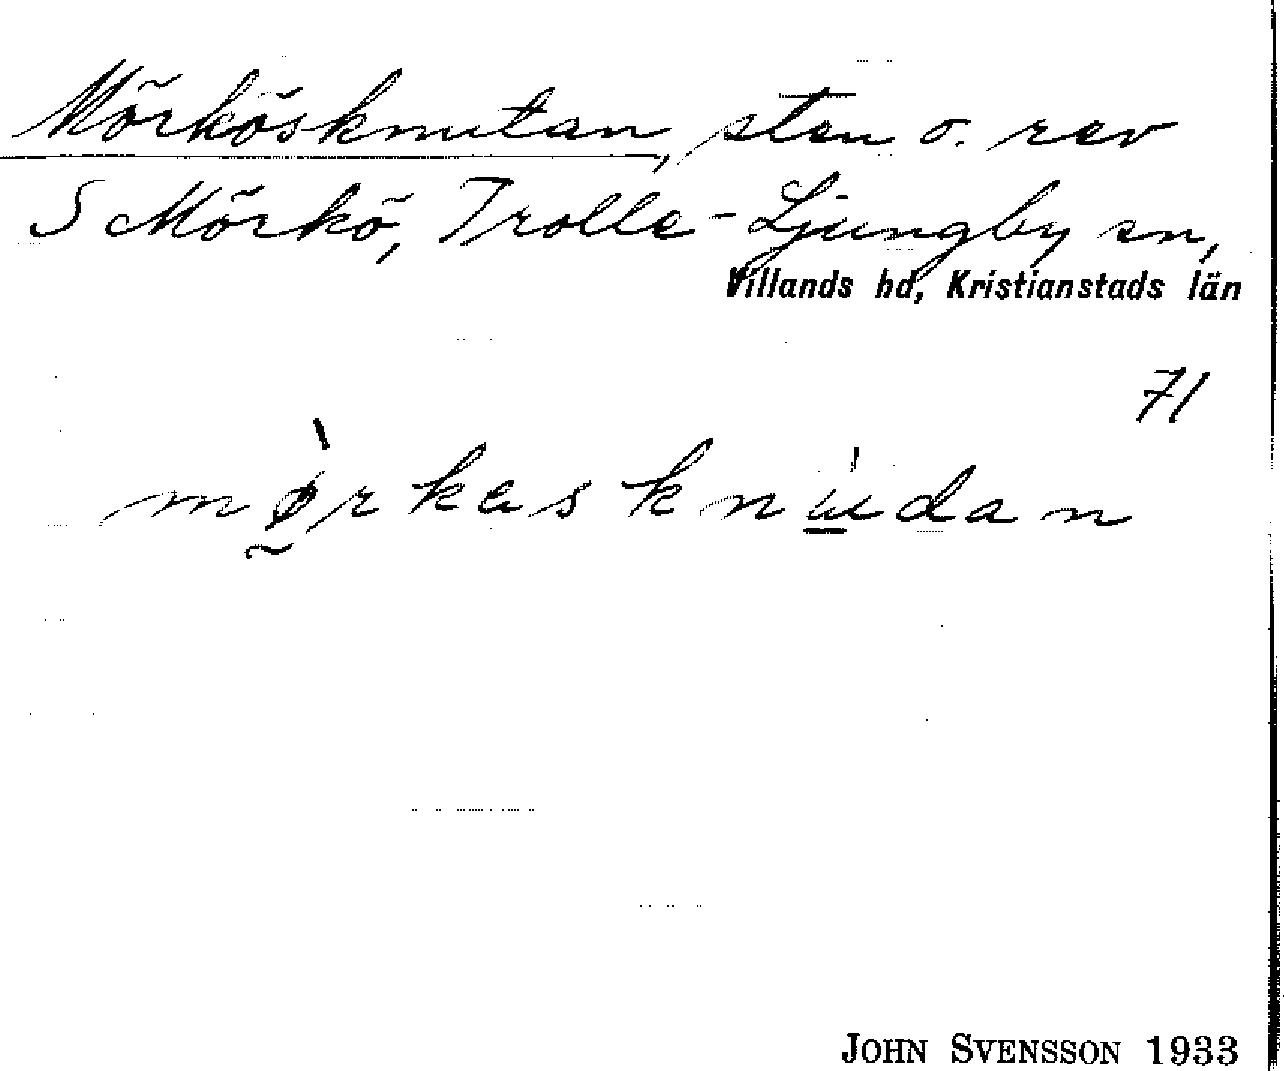 Mörkösknutan, sten o. rev
S Mörkö, Trolle-Ljungby sn,
Villands hd, Kristianstads län
71
mø̀rkasknùdan
JOHN SVENSSON 1933